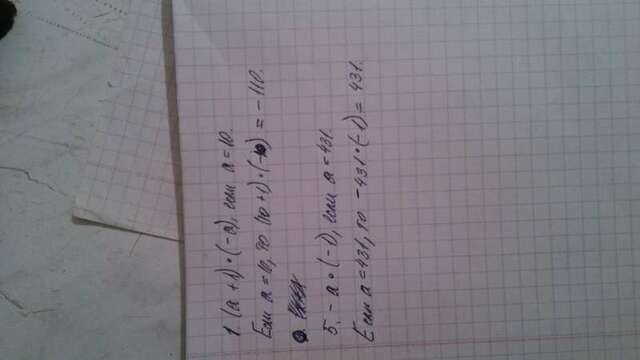 1 (a + 1) • (-a), если a = 10.
Если a = 10, то (10 + 1) • (-10) = -110.
5. - a • (-1), если a = 431.
Если a = 431, то -431 • (-1) = 431.